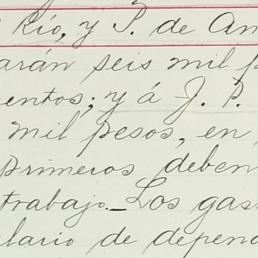 Río, y P. de An
arán seis mil p
entos; y á J. P.
mil pesos, en
primeros, deben
trabajo._Los gas
lario de depen